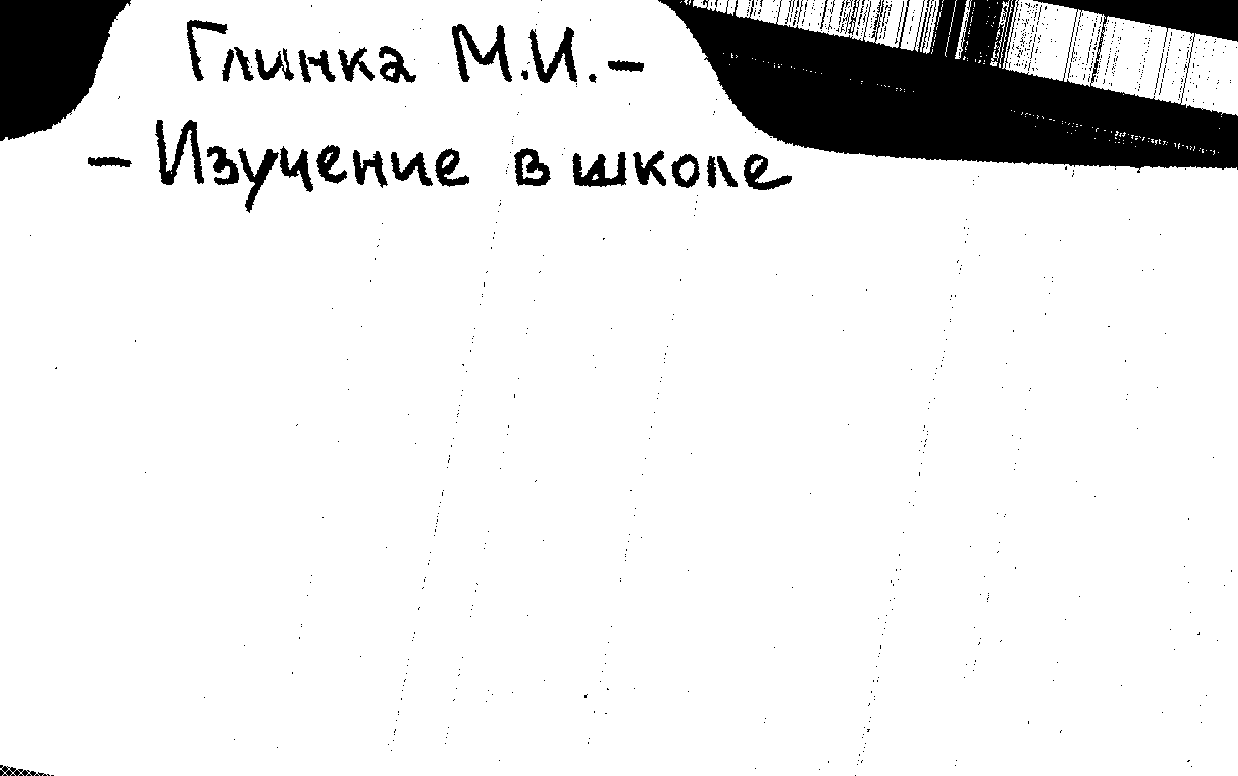 Глинка М.И. –
– Изучение в школе